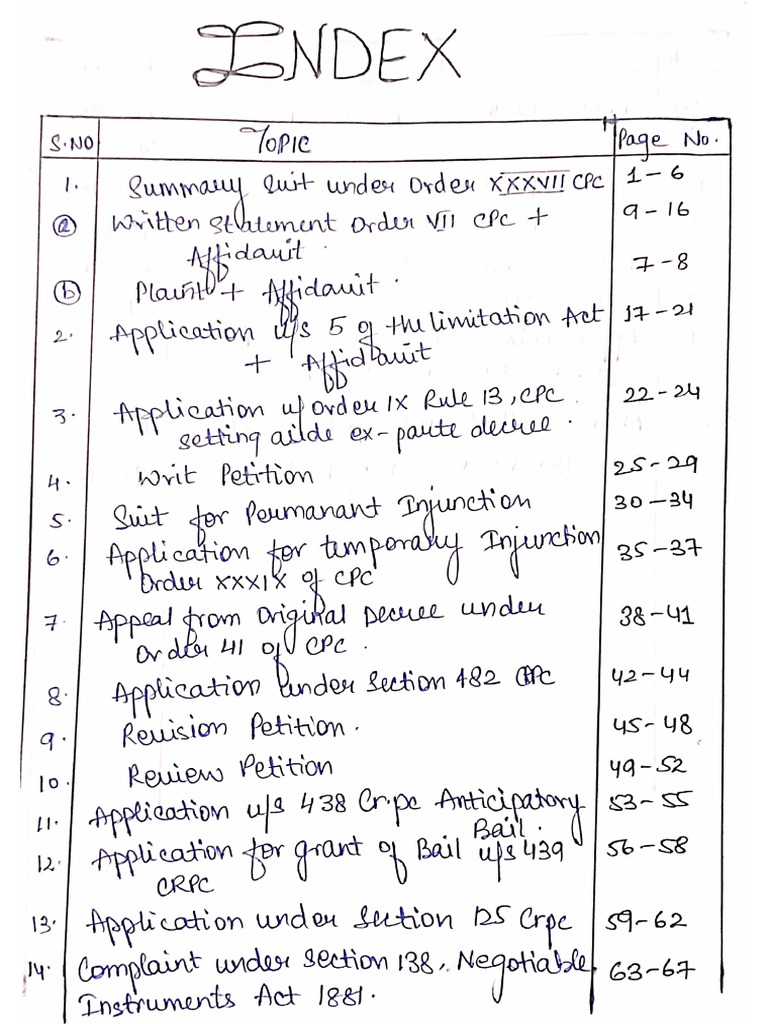 INDEX
S.NO TOPIC Page No.
1. Summary Suit under Order XXXVII CPC 1-6
(a) Written Statement Order VII CPC + 9-16
Affidavit.
(b) Plaint + Affidavit. 7-8
2. Application u/s 5 of the limitation Act 17-21
+ Affidavit
3. Application u/ Order IX Rule 13, CPC 22-24
setting aside ex-parte decree.
4. Writ Petition 25-29
5. Suit for Permanant Injunction 30-34
6. Application for temporary Injunction 35-37
Order XXXIX of CPC
7. Appeal from Original Decree under 38-41
Order 41 of CPC.
8. Application under Section 482 CPC 42-44
9. Revision Petition. 45-48
10. Review Petition 49-52
11. Application u/s 438 Cr.pc Anticipatory 53-55
Bail.
12. Application for grant of Bail u/s 439 56-58
CRPC
13. Application under Section 125 Crpc 59-62
14. Complaint under Section 138, Negotiable 63-67
Instruments Act 1881.